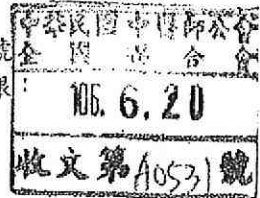 號
限:
中華民國中醫師公會
全國聯合會
106. 6. 20
收文第A0531號